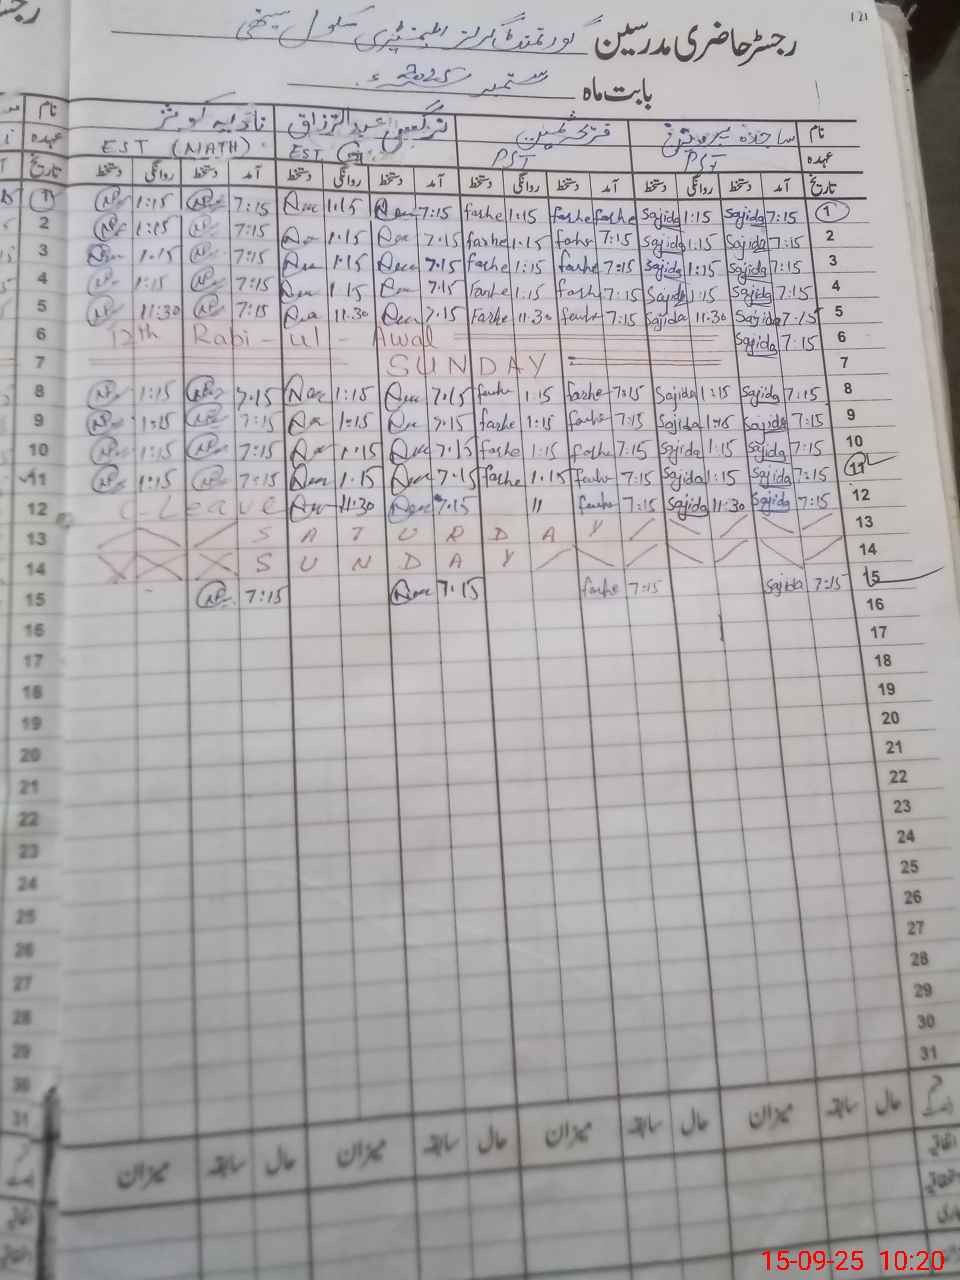 121
رجسٹر حاضری مدرسین گورنمنٹ گرلز ایلیمنٹری سکول
بابت ماہ ستمبر 2025ء
نام ساجدہ نرگس عبدالرزاق نادیہ کوثر نام
عہدہ PST PST EST EST (MATH) عہدہ
تاریخ آمد دستخط روانگی دستخط آمد دستخط روانگی دستخط آمد دستخط روانگی دستخط آمد دستخط روانگی دستخط تاریخ
1 7:15 Sajida 1:15 Sajida farhe farhe 1:15 farhe 7:15 1:15 7:15 1:15 1
2 7:15 Sajida 1:15 Sajida 7:15 farhe 1:15 farhe 7:15 1:15 7:15 1:15 2
3 7:15 Sajida 1:15 Sajida 7:15 farhe 1:15 farhe 7:15 1:15 7:15 1:15 3
4 7:15 Sajida 1:15 Sajida 7:15 farhe 1:15 Farhe 7:15 1:15 7:15 1:15 4
5 7:15 Sajida 11:30 Sajida 7:15 farhe 11:30 Farhe 7:15 11:30 7:15 11:30 5
6 12th Rabi - ul - Awal Sajida 7:15 6
7 SUNDAY 7
8 7:15 Sajida 1:15 Sajida 7:15 farhe 1:15 farhe 7:15 1:15 7:15 1:15 8
9 7:15 Sajida 1:15 Sajida 7:15 farhe 1:15 farhe 7:15 1:15 7:15 1:15 9
10 7:15 Sajida 1:15 Sajida 7:15 farhe 1:15 farhe 7:15 1:15 7:15 1:15 10
11 7:15 Sajida 1:15 Sajida 7:15 farhe 1:15 farhe 7:15 1:15 7:15 1:15 11
12 7:15 Sajida 11:30 Sajida 7:15 farhe 11 7:15 11:30 C-Leave 12
13 SATURDAY 13
14 SUNDAY 14
15 7:15 Sajida 7:15 farhe 7:15 7:15 15
16 16
17 17
18 18
19 19
20 20
21 21
22 22
23 23
24 24
25 25
26 26
27 27
28 28
29 29
30 30
31 31
حال سابقہ میزان حال سابقہ میزان حال سابقہ میزان حال سابقہ میزان
اتفاقیہ
15-09-25 10:20